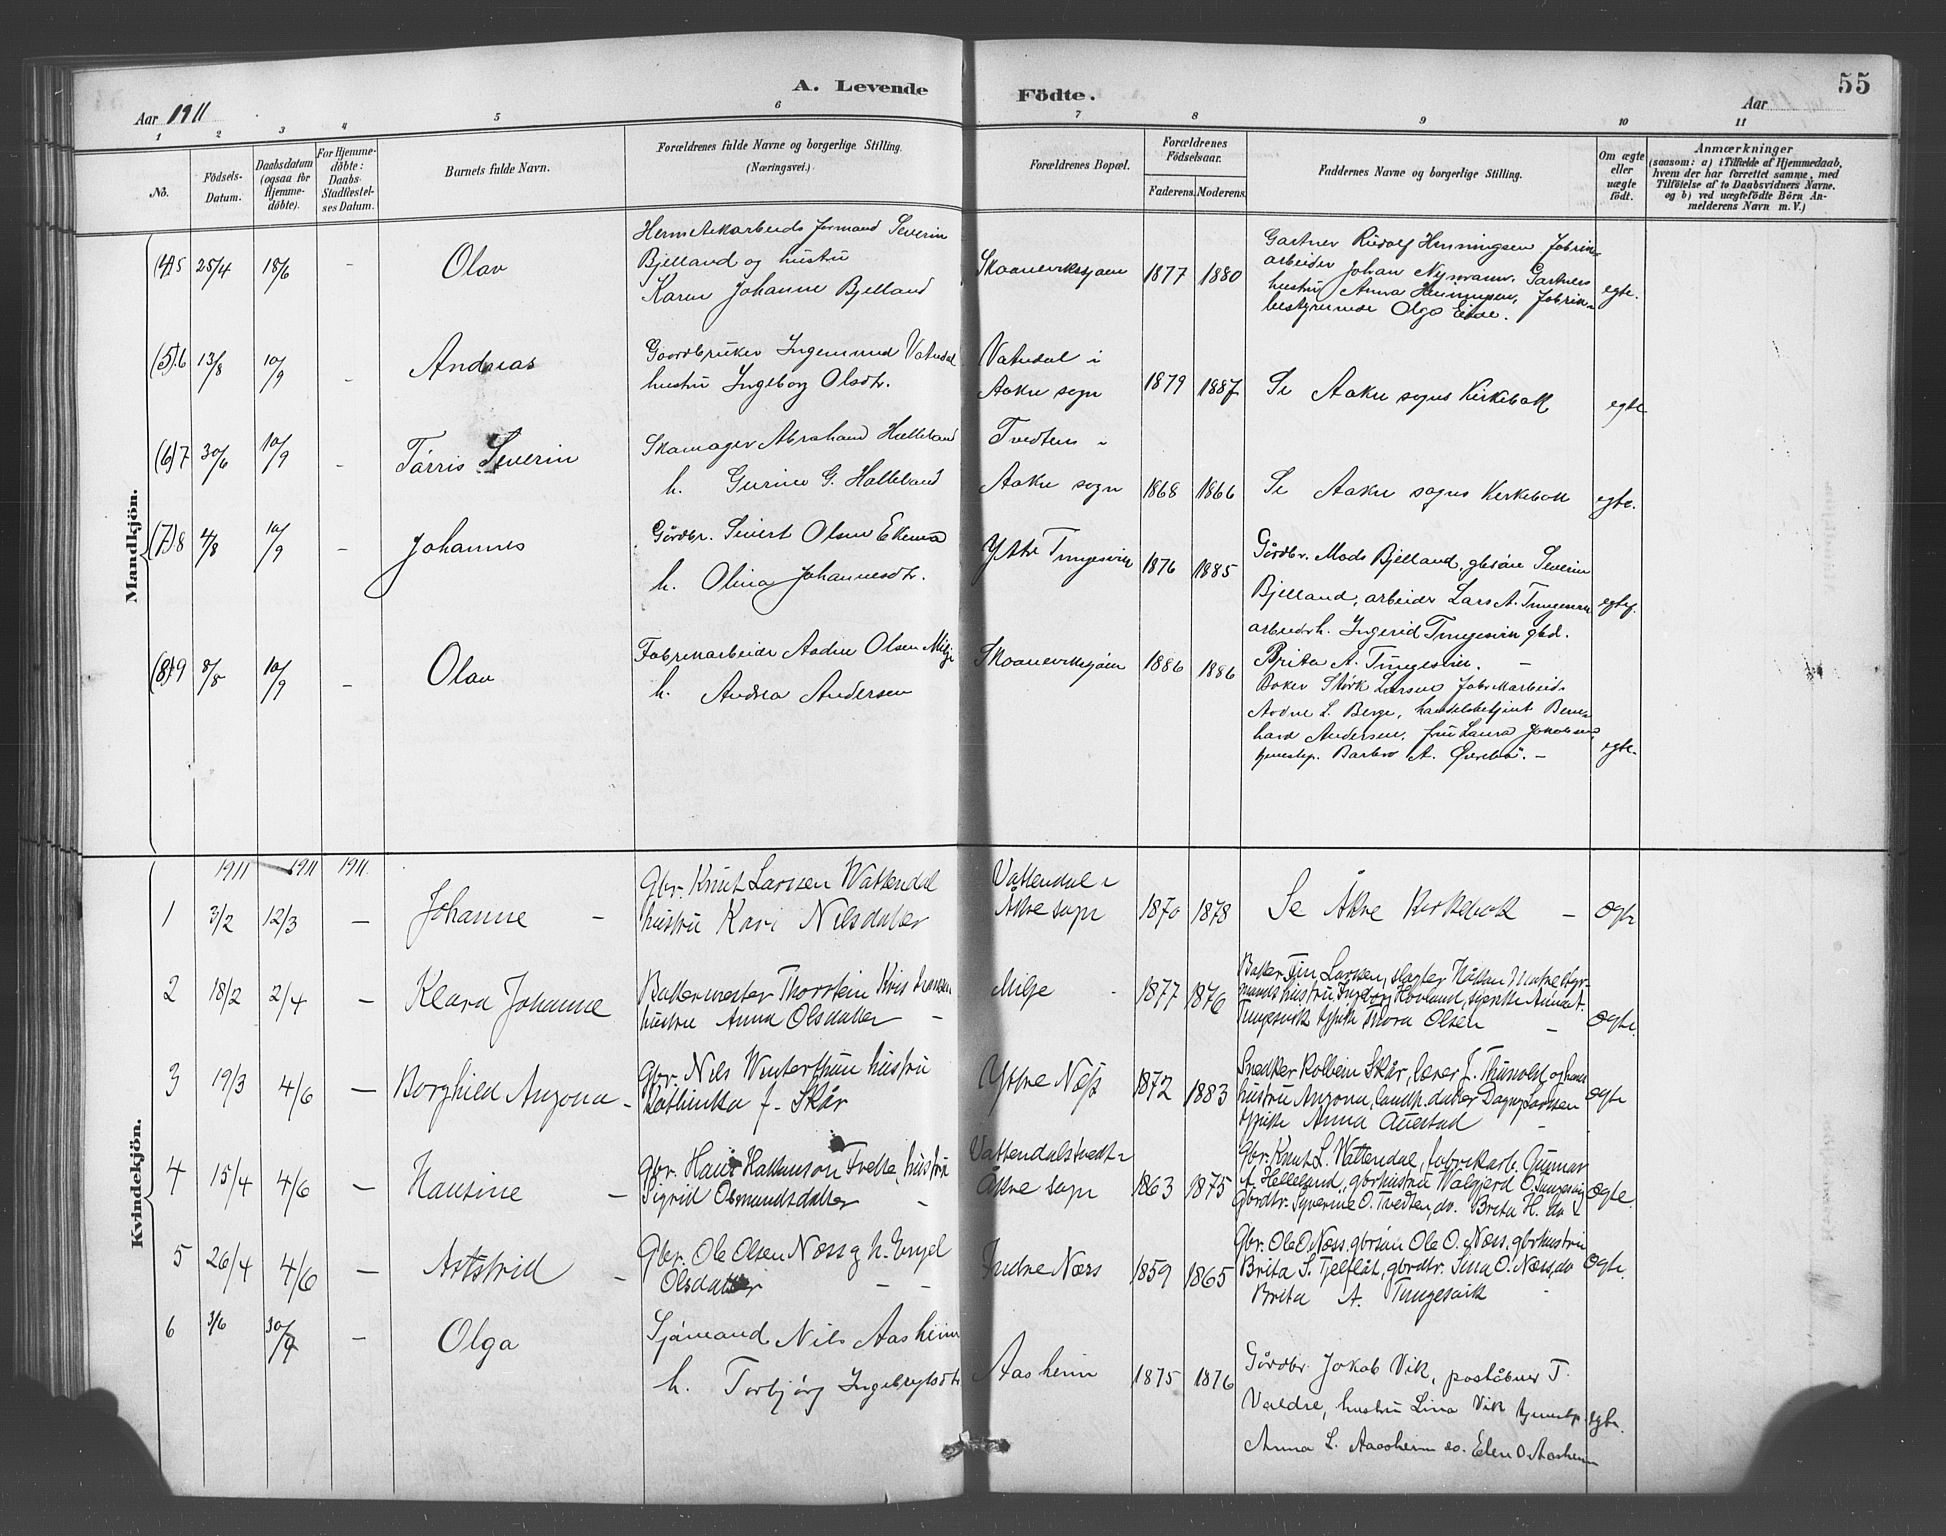 A. Levende Födte.
55
Aar 1911
Aar
1 2 3 4 5 6 7 8 9 10 11
No.
Födsels-Datum.
Daabsdatum (ogsaa for Hjemme-döbte).
For Hjemme-döbte: Daabs-Stadfæstel-ses Datum.
Barnets fulde Navn.
Forældrenes fulde Navne og borgerlige Stilling. (Næringsvei.)
Forældrenes Bopæl.
Forældrenes Födselsaar.
Faderens. Moderens.
Faddernes Navne og borgerlige Stilling.
Om ægte eller uægte födt.
Anmærkninger
(saasom: a) i Tilfælde af Hjemmedaab,
hvem der har forrettet samme, med
Tilföielse af to Daabsvidners Navne.
og b) ved uægtefödte Börn An-
melderens Navn m. V.)
Mandkjön.
(4)5 25/4 18/6 - Olav
Hermetikarbeids formand Severin
Bjelland og hustru
Karen Johanne Bjelland
Skaanevikssjøen 1877 1880
Gartner Rudolf Henningsen fabrik-
arbeider Johan Nymann, Gartners
hustru Anna Henningsen, fabrik-
bestyrerinde Olga Eide.
egte.
(5)6 13/8 10/9 - Andreas
Gaardbruker Ingemund Vatndal
hustru Ingeborg Olsdtr.
Vatndal i
Aakre sogn 1879 1887
Se Aakre sogns Kirkebok
egte
(6)7 30/6 10/9 - Tørris Severin
Skomager Abraham Helleland
h. Gurine G. Helleland
Tvedten i
Aakre sogn 1868 1866
Se Aakre sogns Kirkebok
egte.
(7)8 4/8 10/9 - Johannes
Gårdbr. Sivert Olsen Ekenes
h. Olina Johannesdtr.
Ytre Tungesvik 1876 1885
Gårdbr. Mads Bjelland, gbrsøn Severin
Bjelland, arbeider Lars A. Tungesvik
arbeidrh. Ingerid Tungesvik gbd.
Brita A. Tungesvik. -
egte.
(8)9 8/8 10/9 - Olav
Fabrikarbeider Aadne Olsen Milje
h. Andrea Andersen
Skaanevikssjøen 1886 1886
Baker Størk Larsen fabrikarbeid.
Aadne L. Berge, handelsbetjent Bern-
hard Andersen, fru Laura Jakobsen,
tjenestep. Barbro A. Øvrebø. -
egte.
Kvindekjön.
1911 1911 1911.
1 3/2 12/3 - Johanne -
Gbr. Knut Larsen Wattendal
hustru Kari Nilsdatter
Vattendal i
Åkre sogn 1870 1878
Se Åkre Kirkebok -
ægte
2 18/2 2/4 - Klara Johanne
Bakermester Thorstein Kristensen
hustru Anna Olsdatter -
Milje - 1877 1876
Baker Finn Larsen, slagter Håkon
hustru Ingborg Hovland, Anna T.
Tungesvik tjpike Thora Olsen -
ægte.
3 19/3 4/6 - Borghild Anzona -
Gbr. Nils Winterthun hustru
Kathinka f. Skår
Ytre Næss 1872 1883
Snedker Kolbein Skår, lærer J. Thunold og hans
hustru Anzona, landh. datter Dagny Larsen
tjpike Anna Auestad -
ægte
4 15/4 4/6 - Hansine -
Gbr. Hans Hakanson Tvedte, hustru
Sigrid Osmundsdatter -
Vattendalstvedt i
Åkre sogn 1863 1875
Gbr. Knut L. Vattendal, fabrikarb. Gunnar
A. Helleland, gbrhustru Walgjerd O. Tungesvig
Gbrdtr. Syverine O. Tvedten, do. Brita H. do
ægte.
5 26/4 4/6 - Astrid -
Gbr. Ole Olsen Næss og h. Engel
Olsdatter - -
Indre Næss 1859 1865
Gbr. Ole O. Næss, gbrsøn Ole O. Næss, gbrhustru
Brita S. Tjelflåt, gbrdtr. Sina O. Næss, do
Brita A. Tungesvik -
Ægte.
6 3/6 30/7 - Olga
Sjømand Nils Aasheim
h. Torbjørg Ingebrigtsdtr
Aasheim 1875 1876
Gårdbr. Jakob Vik, poståbner T.
Valdre, hustru Lina Vik tjenestp.
Anna L. Aasheim do. Elen O Aasheim
egte.